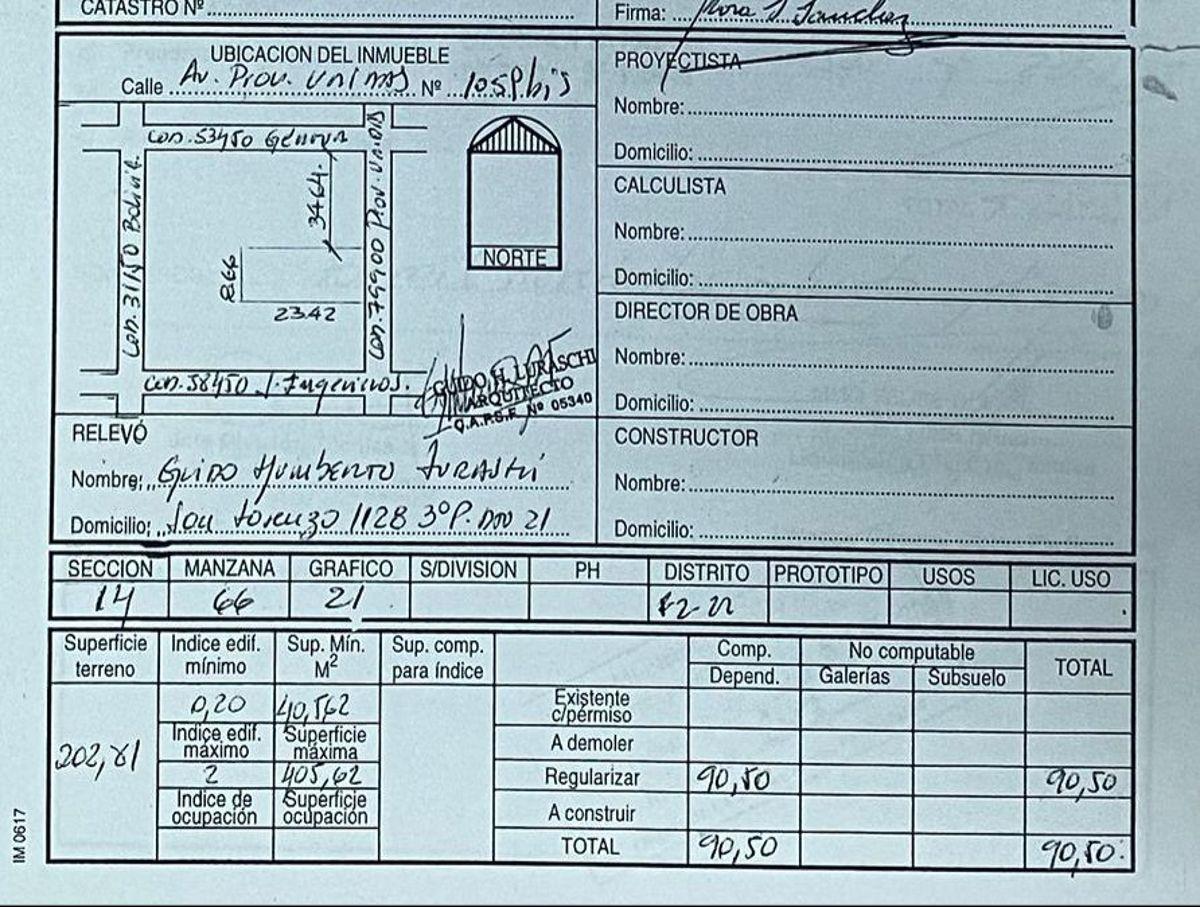 CATASTRO Nº
Firma:
UBICACION DEL INMUEBLE
Calle Av. Prov. Unidas Nº 105P.bis
Con. 53450 Génova
Con. 31150 Bolivia.
3464.
Con. 79900 Prov. Unidas
866
2342
Con. 58450 J. Ingenieros.
NORTE
GUIDO H. LURASCHI
ARQUITECTO
C.A.P.S.F. Nº 05340
RELEVÓ
Nombre: Guido Humberto Luraschi
Domicilio: San Lorenzo 1128 3ºP. Dto 21
PROYECTISTA
Nombre:
Domicilio:
CALCULISTA
Nombre:
Domicilio:
DIRECTOR DE OBRA
Nombre:
Domicilio:
CONSTRUCTOR
Nombre:
Domicilio:
SECCION MANZANA GRAFICO S/DIVISION PH DISTRITO PROTOTIPO USOS LIC. USO
14 66 21
Superficie terreno
202,81
Indice edif. mínimo
0,20
Indice edif. máximo
2
Indice de ocupación
Sup. Mín. M2
40,562
Superficie máxima
405,62
Superficie ocupación
Sup. comp. para índice
Comp. No computable TOTAL
Depend. Galerías Subsuelo
Existente c/permiso
A demoler
Regularizar 90,50 90,50
A construir
TOTAL 90,50 90,50
IM 0617